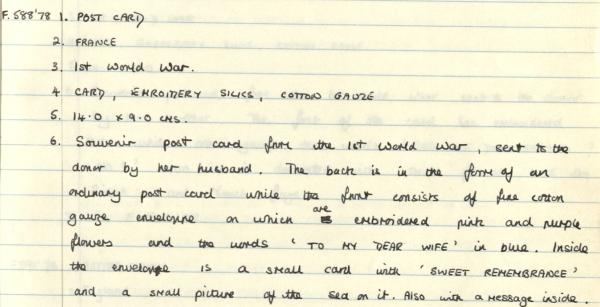 F.588'78 1. POST CARD
2. FRANCE
3. 1st World War.
4 CARD, EMROIDERY SILKS, COTTON GAUZE
5. 14.0 x 9.0 CMS.
6. Souvenir post card from the 1st World War, sent to the
donor by her husband. The back is in the form of an
ordinary post card while the front consists of fine cotton
gauze envelope on which are embroidered pink and purple
flowers and the words 'TO MY DEAR WIFE' in blue. Inside
the envelope is a small card with 'SWEET REMEMBRANCE'
and a small picture of the sea on it. Also with a message inside.